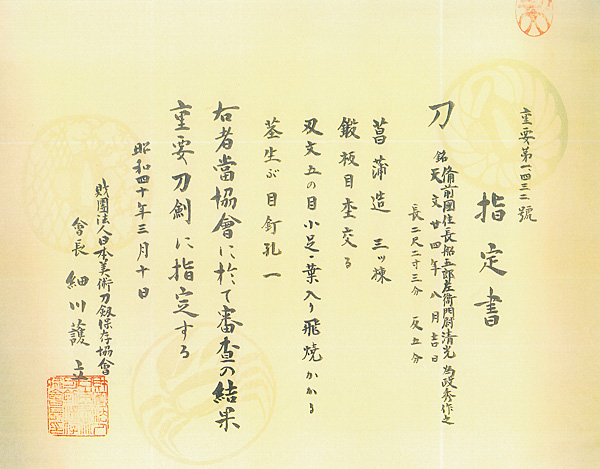 重要第一四三二號
指定書
刀
銘 備前國住長船五郎左衛門尉清光為政秀作之
天文廿四年八月吉日
長二尺二寸三分 反五分
菖蒲造 三ッ棟
鍛板目杢交る
刃文五の目小足・葉入り飛焼かかる
茎生ぶ目釘孔一
右者當協會に於て審査の結果
重要刀劍に指定する
昭和四十年三月十日
財團法人日本美術刀劔保存協會
會長 細川護立